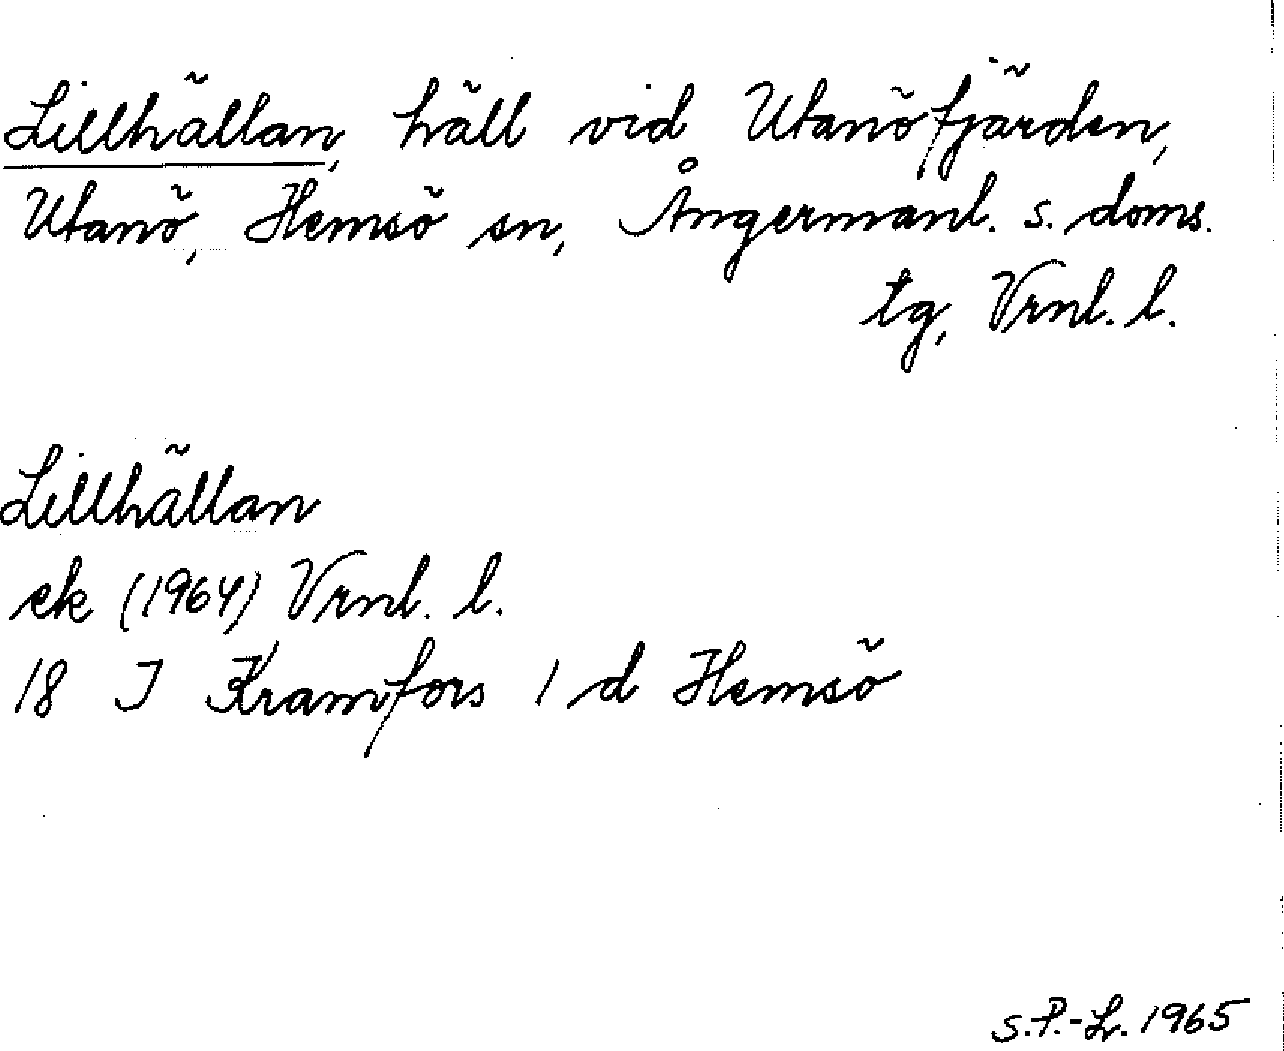 Lillhällan, häll vid Utanöfjärden,
Utanö, Hemsö sn, Ångermanl. s. doms.
tg, Vrnl. l.
Lillhällan
ek (1964) Vrnl. l.
18 J Kramfors 1 d Hemsö
S.P.-L. 1965